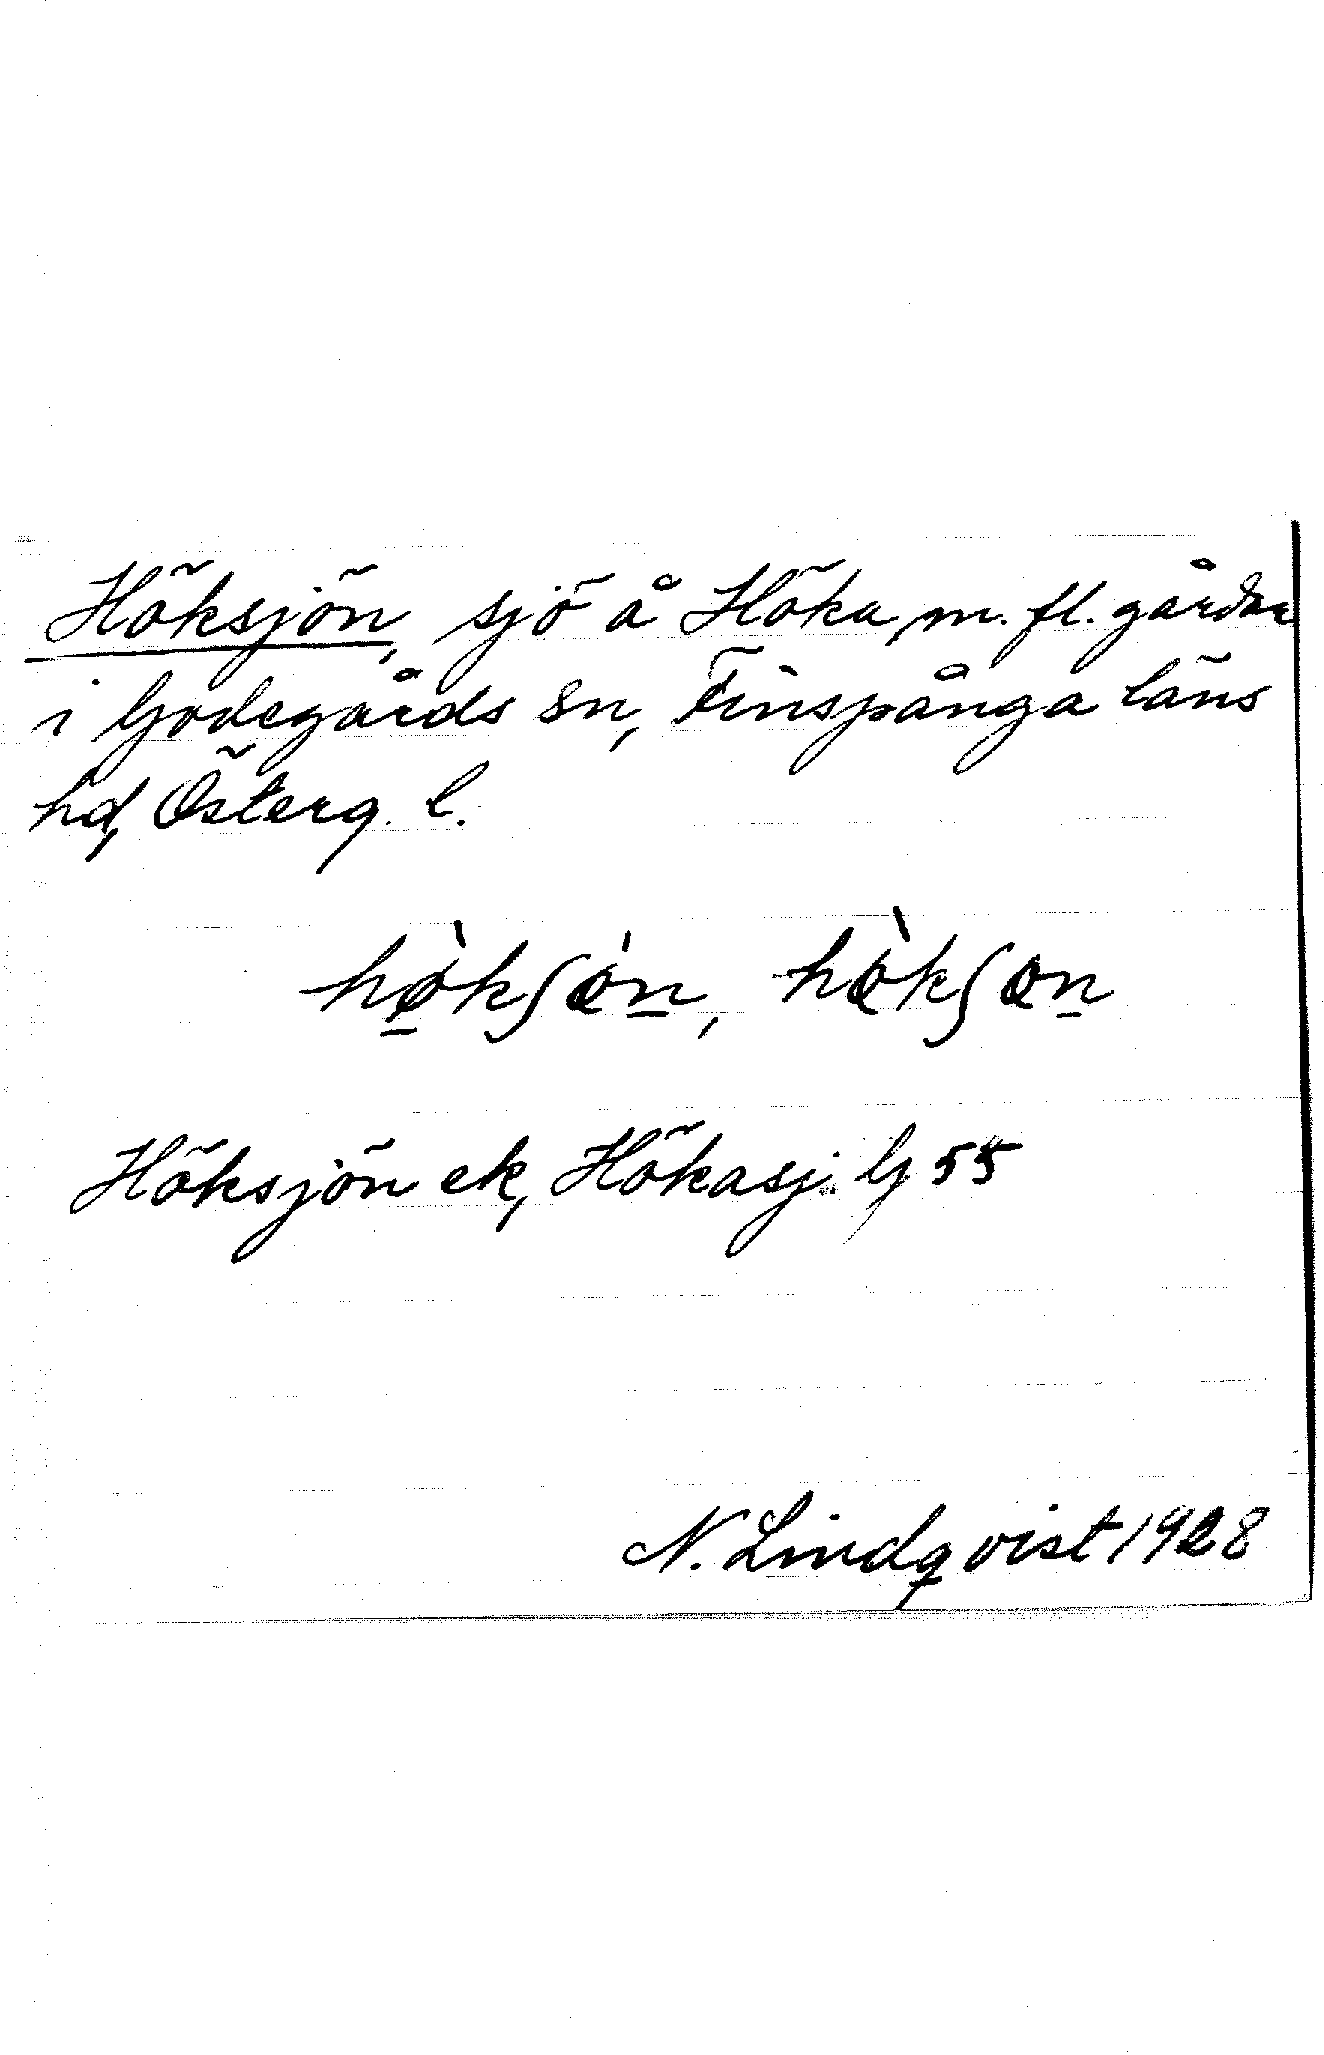 Höksjön, sjö å Höka m. fl. gårdar
i Godegårds sn, Finspånga läns
hd, Österg. l.
hø̀kʃøn, hø̀kʃøn
Höksjön ek, Hökasj. G 55
N. Lindqvist 1928